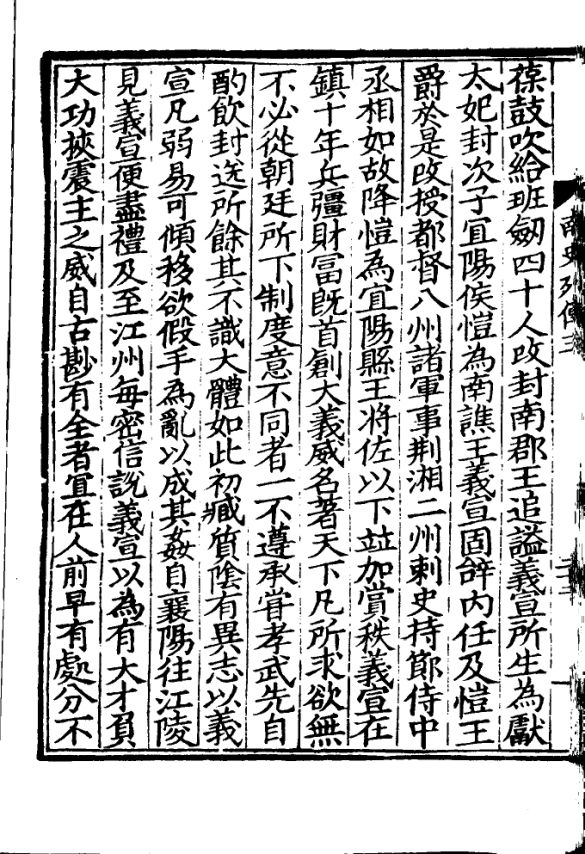 葆鼓吹給班劔四十人改封南郡王追謚義宣所生為獻
太妃封次子宜陽侯愷為南譙王義宣固辝內任及愷王
爵於是改授都督八州諸軍事荆湘二州刺史持節侍中
丞相如故降愷為宜陽縣王將佐以下並加賞秩義宣在
鎮十年兵彊財富旣首創大義威名著天下凡所求欲無
不必從朝廷所下制度意不同者一不遵承甞孝武先自
酌飲封送所餘其不識大體如此初臧質陰有異志以義
宣凡弱易可傾移欲假手為亂以成其姦自襄陽往江陵
見義宣便盡禮及至江州每密信説義宣以為有大才負
大功挾震主之威自古尠有全者宜在人前早有處分不
南史列傳三